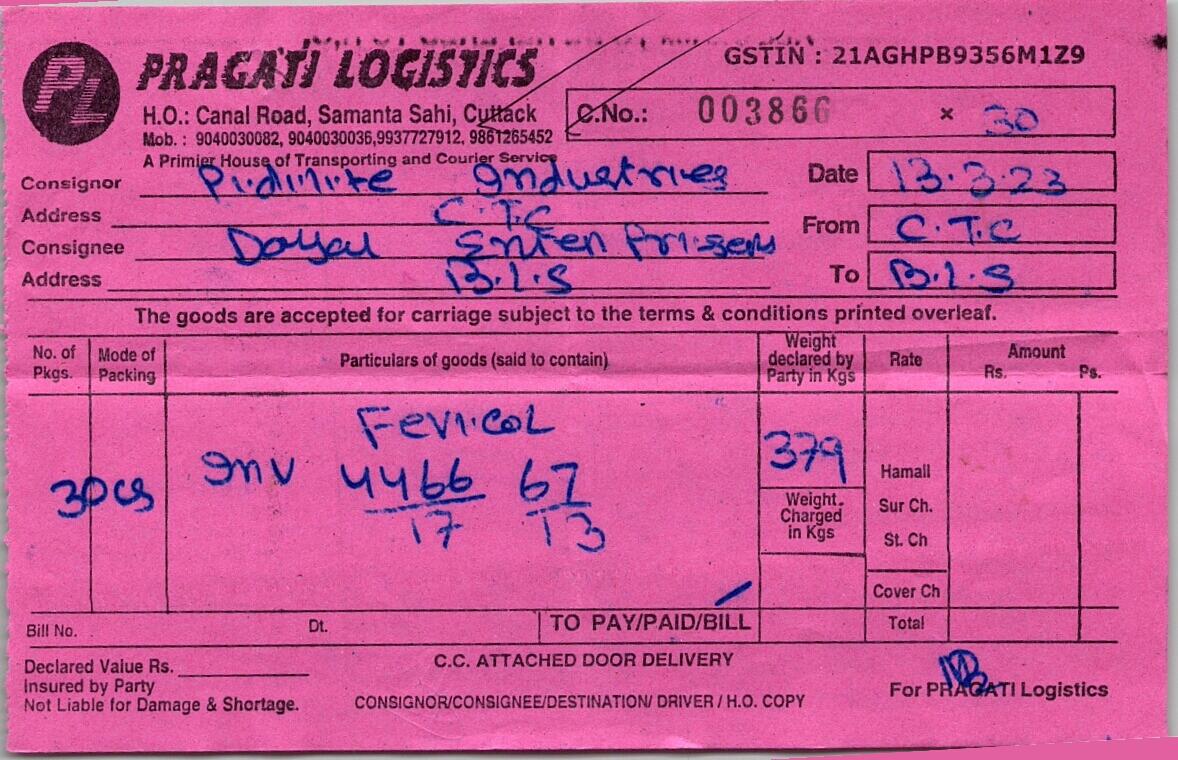 PL PRAGATI LOGISTICS
GSTIN : 21AGHPB9356M1Z9
H.O.: Canal Road, Samanta Sahi, Cuttack
Mob. : 9040030082, 9040030036,9937727912, 9861265452
A Primier House of Transporting and Courier Service
C.No.: 003866 × 30
Consignor Pidilite Industries
Date 13.3.23
Address C.T.C
From C.T.C
Consignee Dayal Enterprisers
Address B.L.S
To B.L.S
The goods are accepted for carriage subject to the terms & conditions printed overleaf.
No. of Pkgs. Mode of Packing Particulars of goods (said to contain) Weight declared by Party in Kgs Rate Amount Rs. Ps.
Fevicol
30 cs Inv 4466/17 67/13 379
Hamali
Weight Charged in Kgs
Sur Ch.
St. Ch
Cover Ch
Bill No. Dt. TO PAY/PAID/BILL Total
Declared Value Rs.
C.C. ATTACHED DOOR DELIVERY
Insured by Party
Not Liable for Damage & Shortage.
CONSIGNOR/CONSIGNEE/DESTINATION/ DRIVER / H.O. COPY
For PRAGATI Logistics